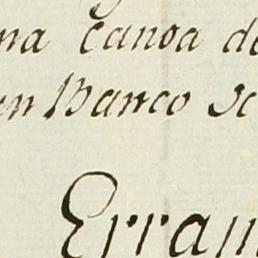 na canoa de
en Banco se
Erram